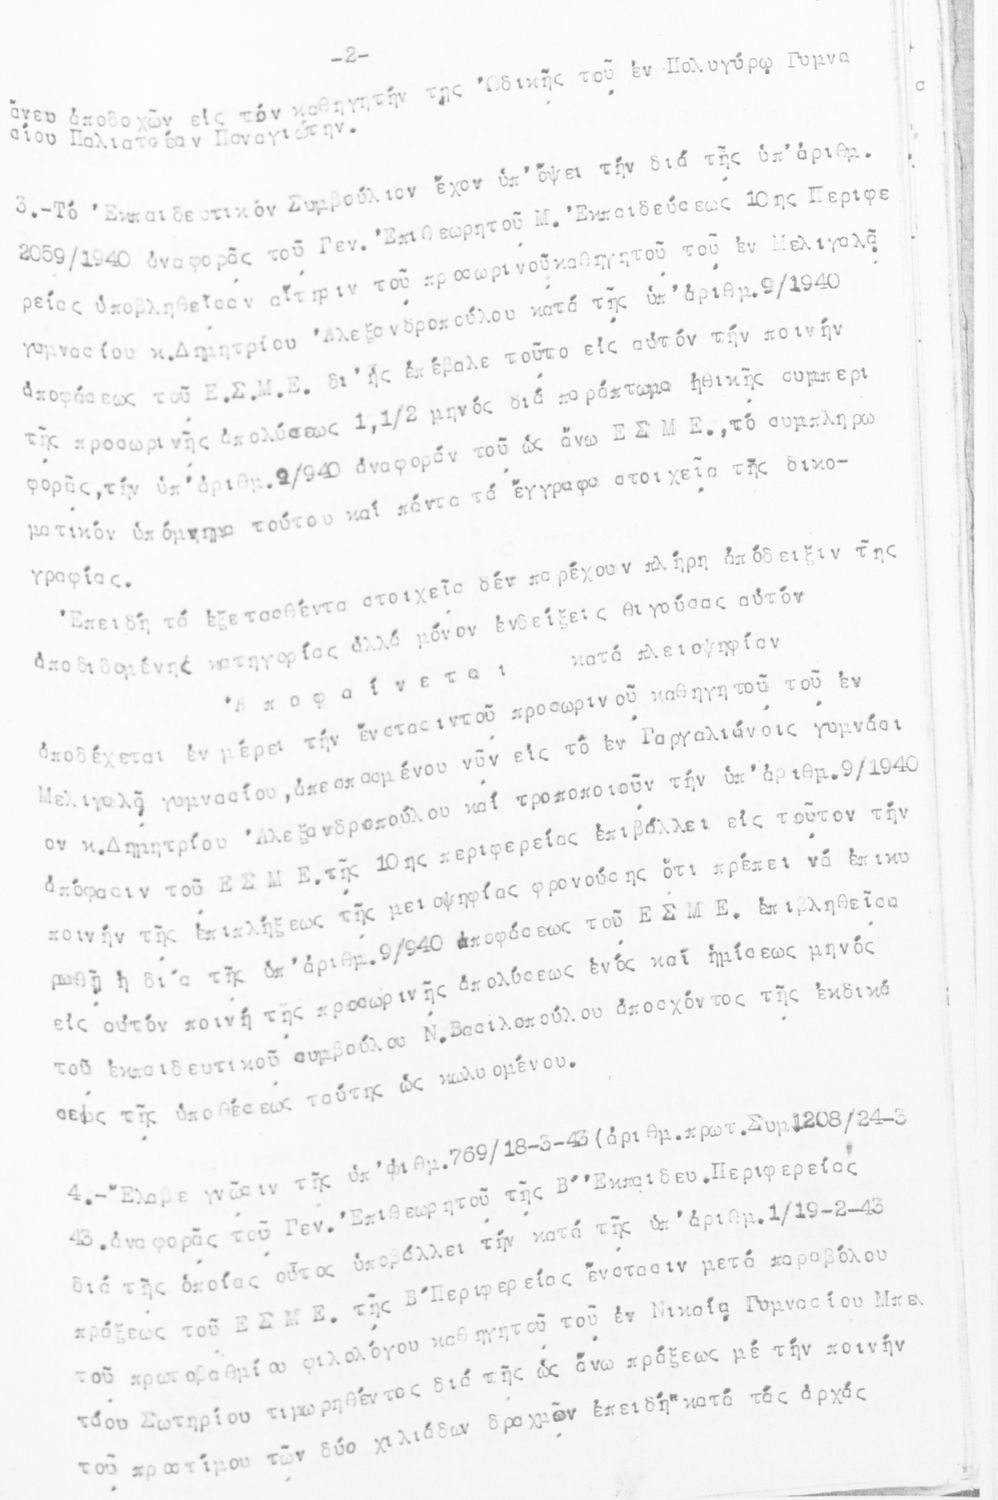 -2-
ἄνευ ἀποδοχῶν εἰς τόν καθηγητήν της Ὠδικῆς τοῦ ἐν Πολυγύρῳ Γυμνα
σίου Παλιατσέαν Παναγιώτην.
3.-Τό Ἐκπαιδευτικόν Συμβούλιον ἔχον ὑπ' ὄψει τήν διά τῆς ὑπ' ἀριθμ.
2059/1940 ἀναφορᾶς τοῦ Γεν. Ἐπιθεωρητοῦ Μ. Ἐκπαιδεύσεως 10ης Περιφε
ρείας ὑποβληθεῖσαν αἴτησιν τοῦ προσωρινοῦ καθηγητοῦ τοῦ ἐν Μελιγαλᾷ
γυμνασίου κ.Δημητρίου Ἀλεξανδροπούλου κατά τῆς ὑπ' ἀριθμ.9/1940
ἀποφάσεως τοῦ Ε.Σ.Μ.Ε. δι' ἧς ἐπέβαλε τοῦτο εἰς αὐτόν τήν ποινήν
τῆς προσωρινῆς ἀπολύσεως 1,1/2 μηνός διά παράπτωμα ἠθικῆς συμπερι
φορᾶς,τήν ὑπ' ἀριθμ.9/940 ἀναφοράν τοῦ ὡς ἄνω Ε Σ Μ Ε.,τό συμπληρω
ματικόν ὑπόμνημα τούτου καί πάντα τά ἔγγραφα στοιχεῖα τῆς δικο-
γραφίας.
Ἐπειδή τά ἐξετασθέντα στοιχεῖα δέν παρέχουν πλήρη ἀπόδειξιν τῆς
ἀποδιδομένης κατηγορίας ἀλλά μόνον ἐνδείξεις θιγούσας αὐτόν
Ἀ π ο φ α ί ν ε τ α ι κατά πλειοψηφίαν
ἀποδέχεται ἐν μέρει τήν ἔνστασιν τοῦ προσωρινοῦ καθηγητοῦ τοῦ ἐν
Μελιγαλᾷ γυμνασίου,ἀπεσπασμένου νῦν εἰς τό ἐν Γαργαλιάνοις γυμνάσι
ον κ.Δημητρίου Ἀλεξανδροπούλου καί τροποποιοῦν τήν ὑπ' ἀριθμ.9/1940
ἀπόφασιν τοῦ Ε Σ Μ Ε.τῆς 10ης περιφερείας ἐπιβάλλει εἰς τοῦτον τήν
ποινήν τῆς ἐπιπλήξεως τῆς μειοψηφίας φρονούσης ὅτι πρέπει νά ἐπικυ
ρωθῇ ἡ διά τῆς ὑπ' ἀριθμ.9/940 ἀποφάσεως τοῦ Ε Σ Μ Ε. ἐπιβληθεῖσα
εἰς αὐτόν ποινή τῆς προσωρινῆς ἀπολύσεως ἑνός καί ἡμίσεως μηνός
τοῦ ἐκπαιδευτικοῦ συμβούλου Ν.Βασιλοπούλου ἀποσχόντος τῆς ἐκδικά
σεως τῆς ὑποθέσεως ταύτης ὡς κωλυομένου.
4.-Ἔλαβε γνῶσιν τῆς ὑπ' ἀριθμ.769/18-3-43(ἀριθμ.πρωτ.Συμ.1208/24-3
43.ἀναφορᾶς τοῦ Γεν. Ἐπιθεωρητοῦ τῆς Β' Ἐκπαιδευ.Περιφερείας
διά τῆς ὁποίας οὗτος ὑποβάλλει τήν κατά τῆς ὑπ' ἀριθμ.1/19-2-43
πράξεως τοῦ Ε Σ Μ Ε. τῆς Β' Περιφερείας ἔνστασιν μετά παραβόλου
τοῦ πρωτοβαθμίου φιλολόγου καθηγητοῦ τοῦ ἐν Νικαίᾳ Γυμνασίου Μπελ
τάου Σωτηρίου τιμωρηθέντος διά τῆς ὡς ἄνω πράξεως μέ τήν ποινήν
τοῦ προστίμου τῶν δύο χιλιάδων δραχμῶν ἐπειδή"κατά τάς ἀρχάς